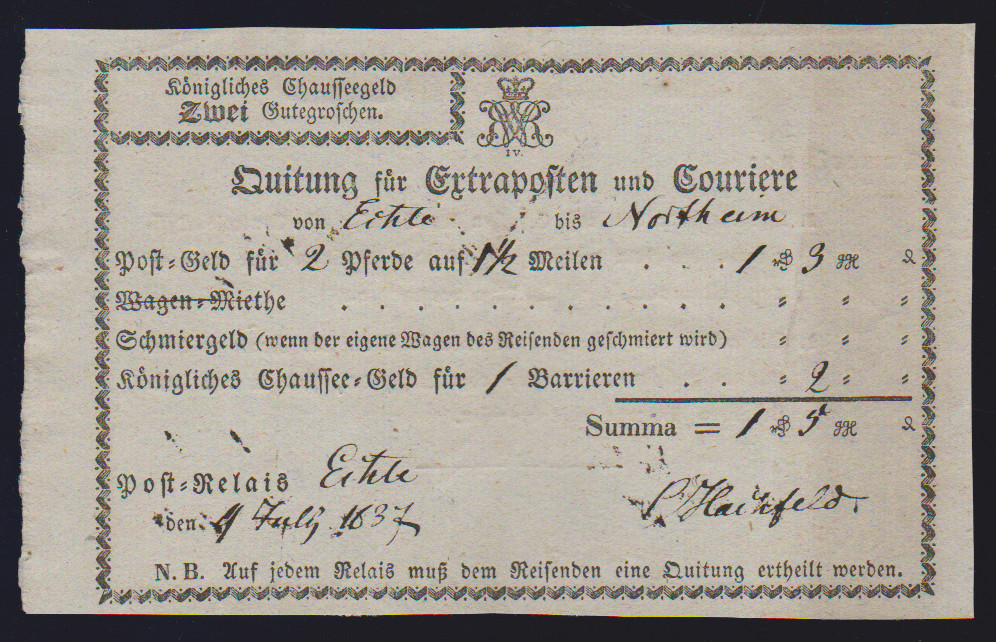 Königliches Chausseegeld
Zwei Gutegroschen.
IV.
Quitung für Extraposten und Couriere
von Echte bis Northeim
Post-Geld für 2 Pferde auf 1½ Meilen . . . 1 3
Wagen-Miethe . . . . . . . . . . . . . " " "
Schmiergeld (wenn der eigene Wagen des Reisenden geschmiert wird) " " "
Königliches Chaussee-Geld für 1 Barrieren . . " 2 " "
Summa = 1 5
Post-Relais Echte
den 9 July 1837
Hachfeld
N. B. Auf jedem Relais muß dem Reisenden eine Quitung ertheilt werden.